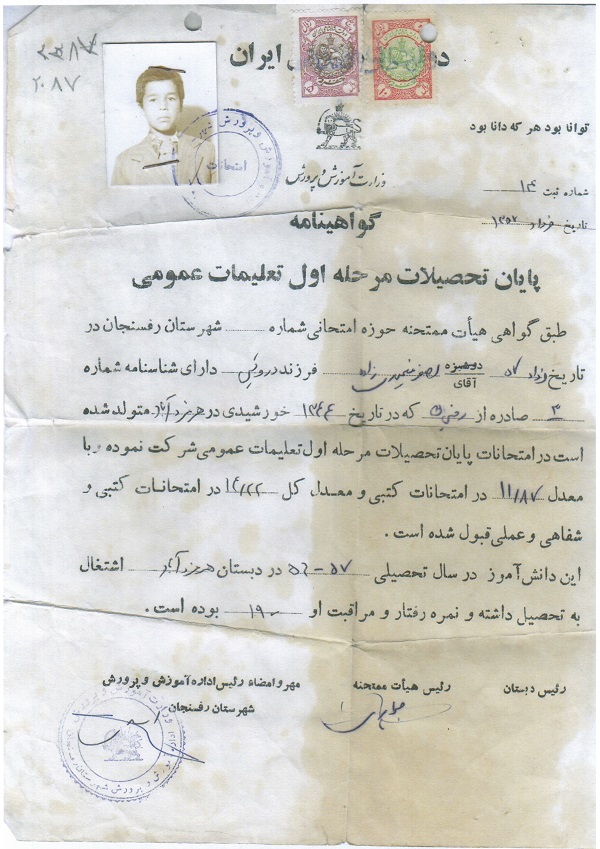 ۲۰۸۷
ایران
توانا بود هر که دانا بود
وزارت آموزش و پرورش
شماره ثبت ۱۳۰
تاریخ خرداد ۱۳۵۷
امتحانات
گواهینامه
پایان تحصیلات مرحله اول تعلیمات عمومی
طبق گواهی هیأت ممتحنه حوزه امتحانی شماره شهرستان رفسنجان در
تاریخ خرداد ۵۷ دوشیزه آقای اصغر زاده فرزند درویش دارای شناسنامه شماره
۳ صادره از که در تاریخ ۱۳۴۴ خورشیدی در هرمزآباد متولد شده
است در امتحانات پایان تحصیلات مرحله اول تعلیمات عمومی شرکت نموده و با
معدل ۱۱/۸۷ در امتحانات کتبی و معدل کل ۱۴/۲۲ در امتحانات کتبی و
شفاهی و عملی قبول شده است .
این دانش‌آموز در سال تحصیلی ۵۷ - ۵۶ در دبستان هرمزآباد اشتغال
به تحصیل داشته و نمره رفتار و مراقبت او بوده است .
رئیس دبستان
رئیس هیأت ممتحنه
مهر و امضاء رئیس اداره آموزش و پرورش
شهرستان رفسنجان